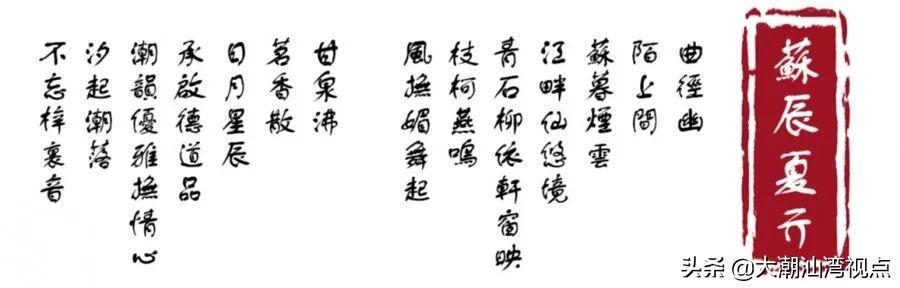 蘇辰夏亓
曲徑幽
陌上間
蘇暮煙雲
江畔仙悠境
青石柳依軒窗映
枝柯燕鳴
風撫媚舞起
甘泉沸
茗香散
日月星辰
承啟德道品
潮韻優雅撫情心
汐起潮落
不忘梓裏音
头条 @大潮汕湾视点